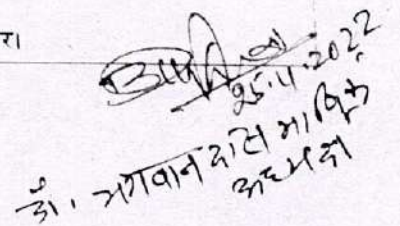 रा
25.4.2022
डॉ. भगवान दास माणिक
अध्यक्ष